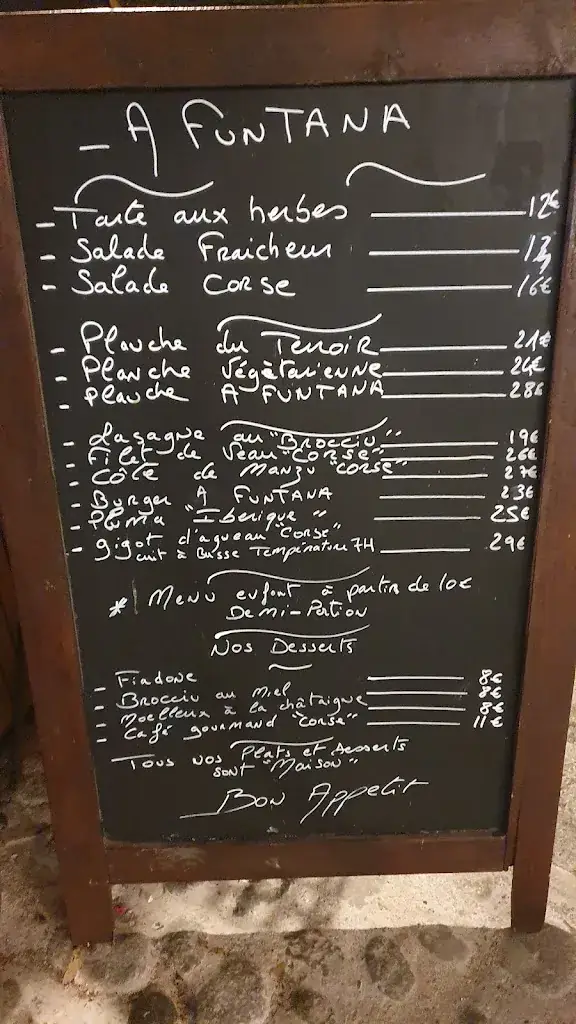 _ A FUNTANA
- Tarte aux herbes 12€
- Salade Fraicheur
- Salade Corse 16€
- Planche du Terroir 21€
- Planche Végètarienne 24€
- Planche A FUNTANA 28€
- Lasagne au "BROCCIU" 19€
- Filet de Veau "CORSE" 26€
- Côte de MANZU "CORSE" 27€
- Burger A FUNTANA 23€
- Pluma "Iberique" 25€
- gigot d'agneau "Corse" 29€
cuit à Basse Température 7H
* Menu enfant à partir de 10€
Demi-Portion
Nos Desserts
- Fiadone 8€
- Brocciu au Miel 8€
- Moelleux à la châtaigne 8€
- Café gourmand "Corse" 11€
Tous nos Plats et desserts
sont "Maison"
Bon Appetit